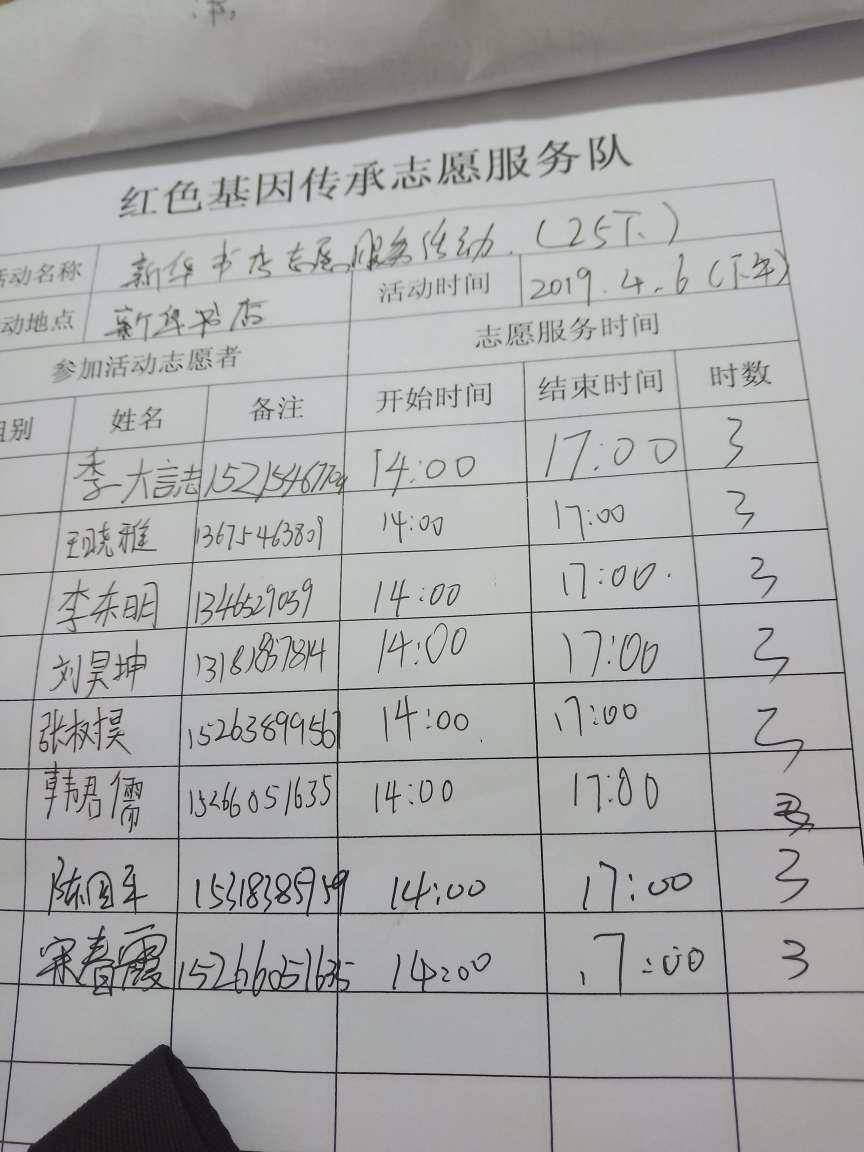 红色基因传承志愿服务队
活动名称 新华书店志愿服务活动.(25下.)
动地点 新华书店 活动时间 2019.4.6(下午)
参加活动志愿者 志愿服务时间
组别 姓名 备注 开始时间 结束时间 时数
季大言志 14:00 17:00 3
王晓雅 13675463809 14:00 17:00 3
李东明 1346529059 14:00 17:00. 3
刘昊坤 14:00 17:00 3
张树昊 15263899567 14:00. 17:00 3
韩君儒 15266051635 14:00 17:00 3
陈国军 15318385959 14:00 17:00 3
宋春霞 15266051635 14:00 17:00 3